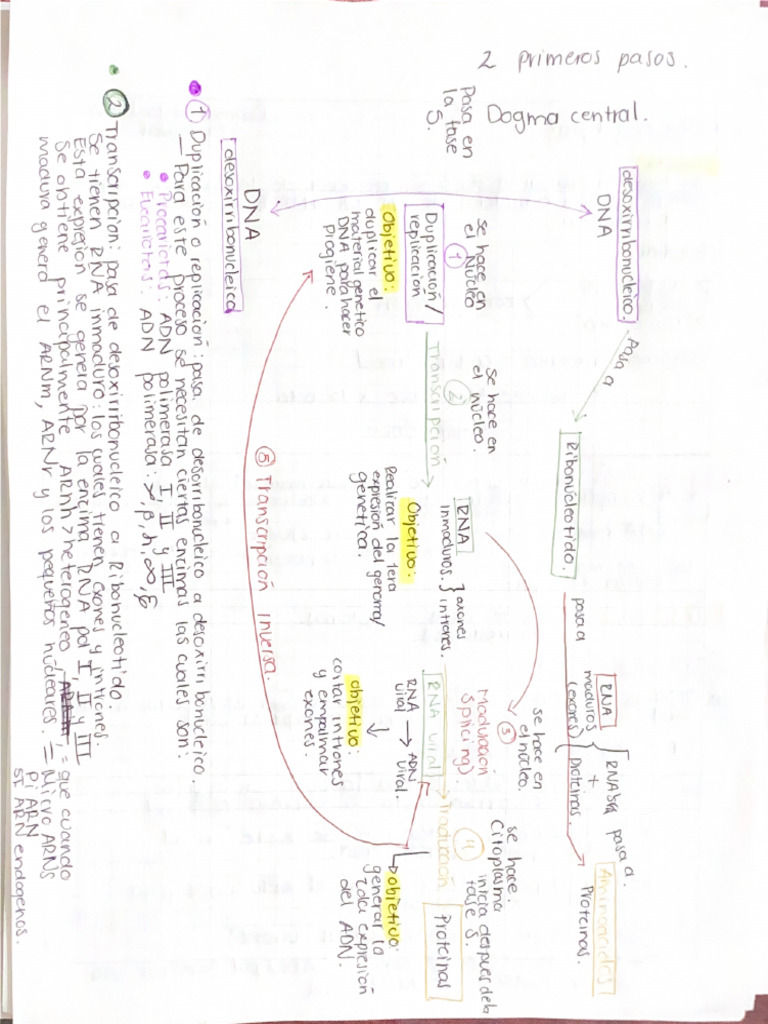 2 primeros pasos.
Dogma central.
Pasa en
la fase
S.
desoxirribonucleico.
DNA
Pasa a
Ribonucleotido.
pasa a
RNA
maduros
(exones)
RNAs
+
Proteinas.
pasa a.
Aminoacidos
Proteinas.
se hace en
el Núcleo
1
Duplicación/
replicacion
Objetivo:
duplicar el
material genetico
DNA para hacer
Progiene.
DNA
desoxirribonucleico
se hace en
el núcleo.
2
Transcripción
RNA
inmaduros.
} exones
intrones.
Objetivo:
Realizar la 1era
expresión del genoma/
genetica.
se hace en
el núcleo.
3
Maduracion
splicing)
RNA viral
RNA
viral
→ ADN
viral.
objetivo:
cortar intrones
y empalmar
exones.
se hace.
Citoplasma
inicia despues de la
fase S.
4
Traducción
Proteinas
objetivo:
generar la
2da expresión
del ADN.
5 Transcripción inversa.
• 1 Duplicación o replicación: pasa de desoxirribonucleico a desoxirribonucleico.
— Para este proceso se necesitan ciertas encimas las cuales son:
• Procariotas: ADN polimerasa I, II y III
• Eucariotas: ADN polimerasa:
• 2 Transcripcion: pasa de desoxirribonucleico a Ribonucleotido.
Se tienen RNA inmaduro: los cuales tienen exones y intrones.
Esta expresión se genera por la encima RNA pol I, II y III
Se obtiene principalmente ARNh > heterogeneo = que cuando
madura genera el ARNm, ARNr y los pequeños nucleares. = Micro ARNs
Pi ARN
si ARN endogenos.